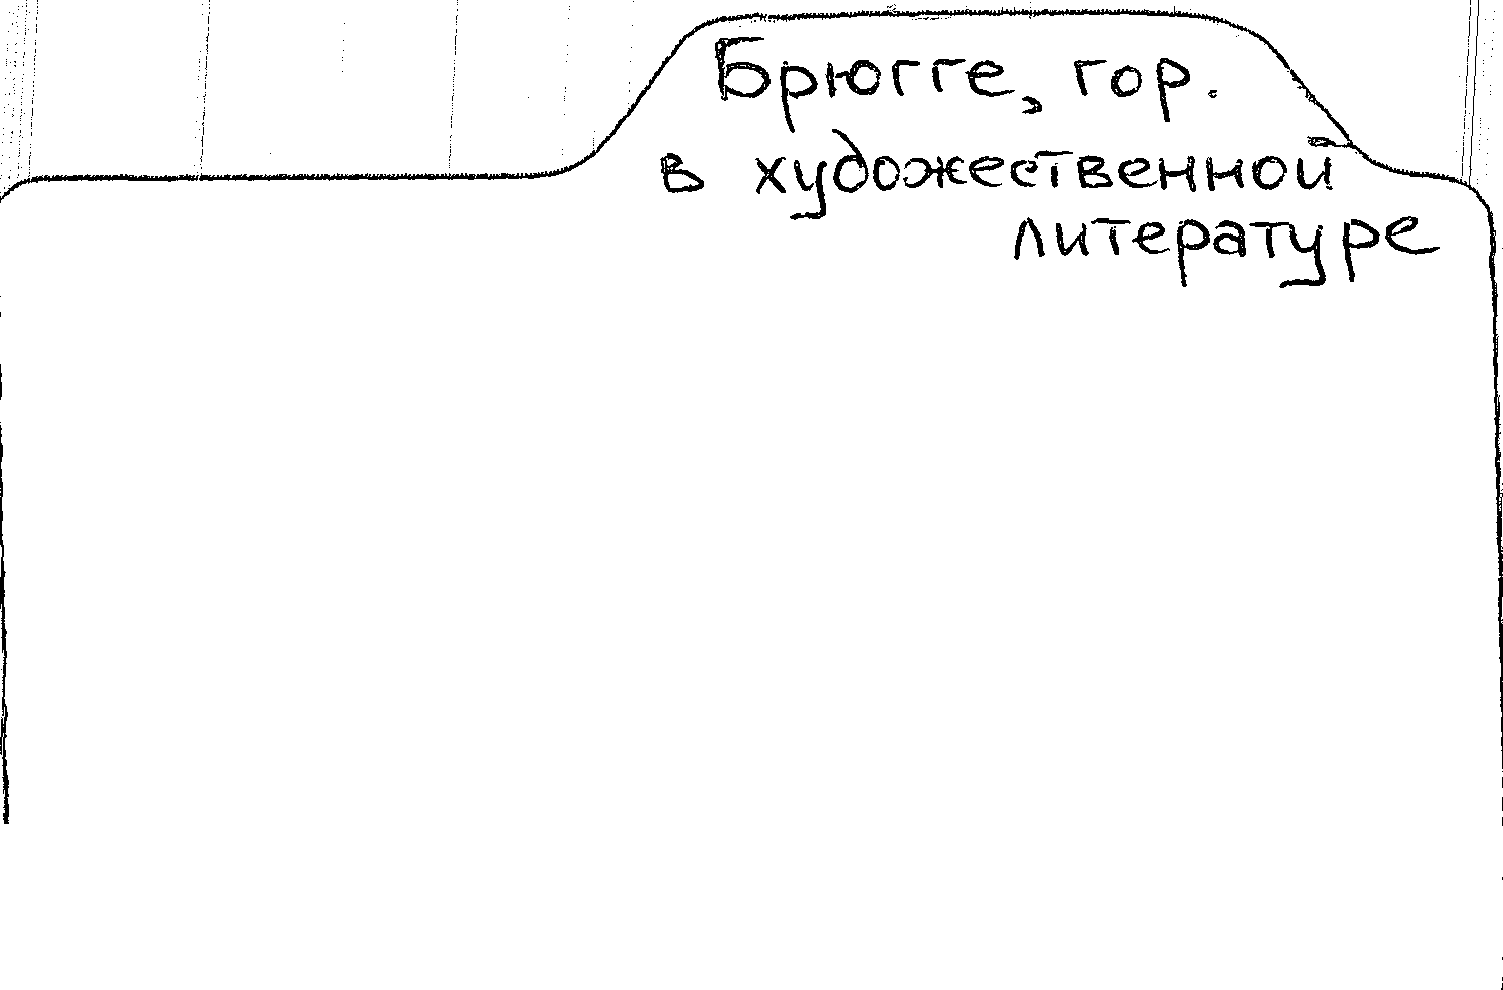 Брюгге, гор.
в художественной
литературе